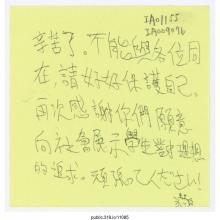 IA01155
IA009076
辛苦了。不能與各位同
在,請好好保護自己。
再次感謝你們願意
向社會展示學生對理想
的追求。頑張ってください!
public.318.io/11085